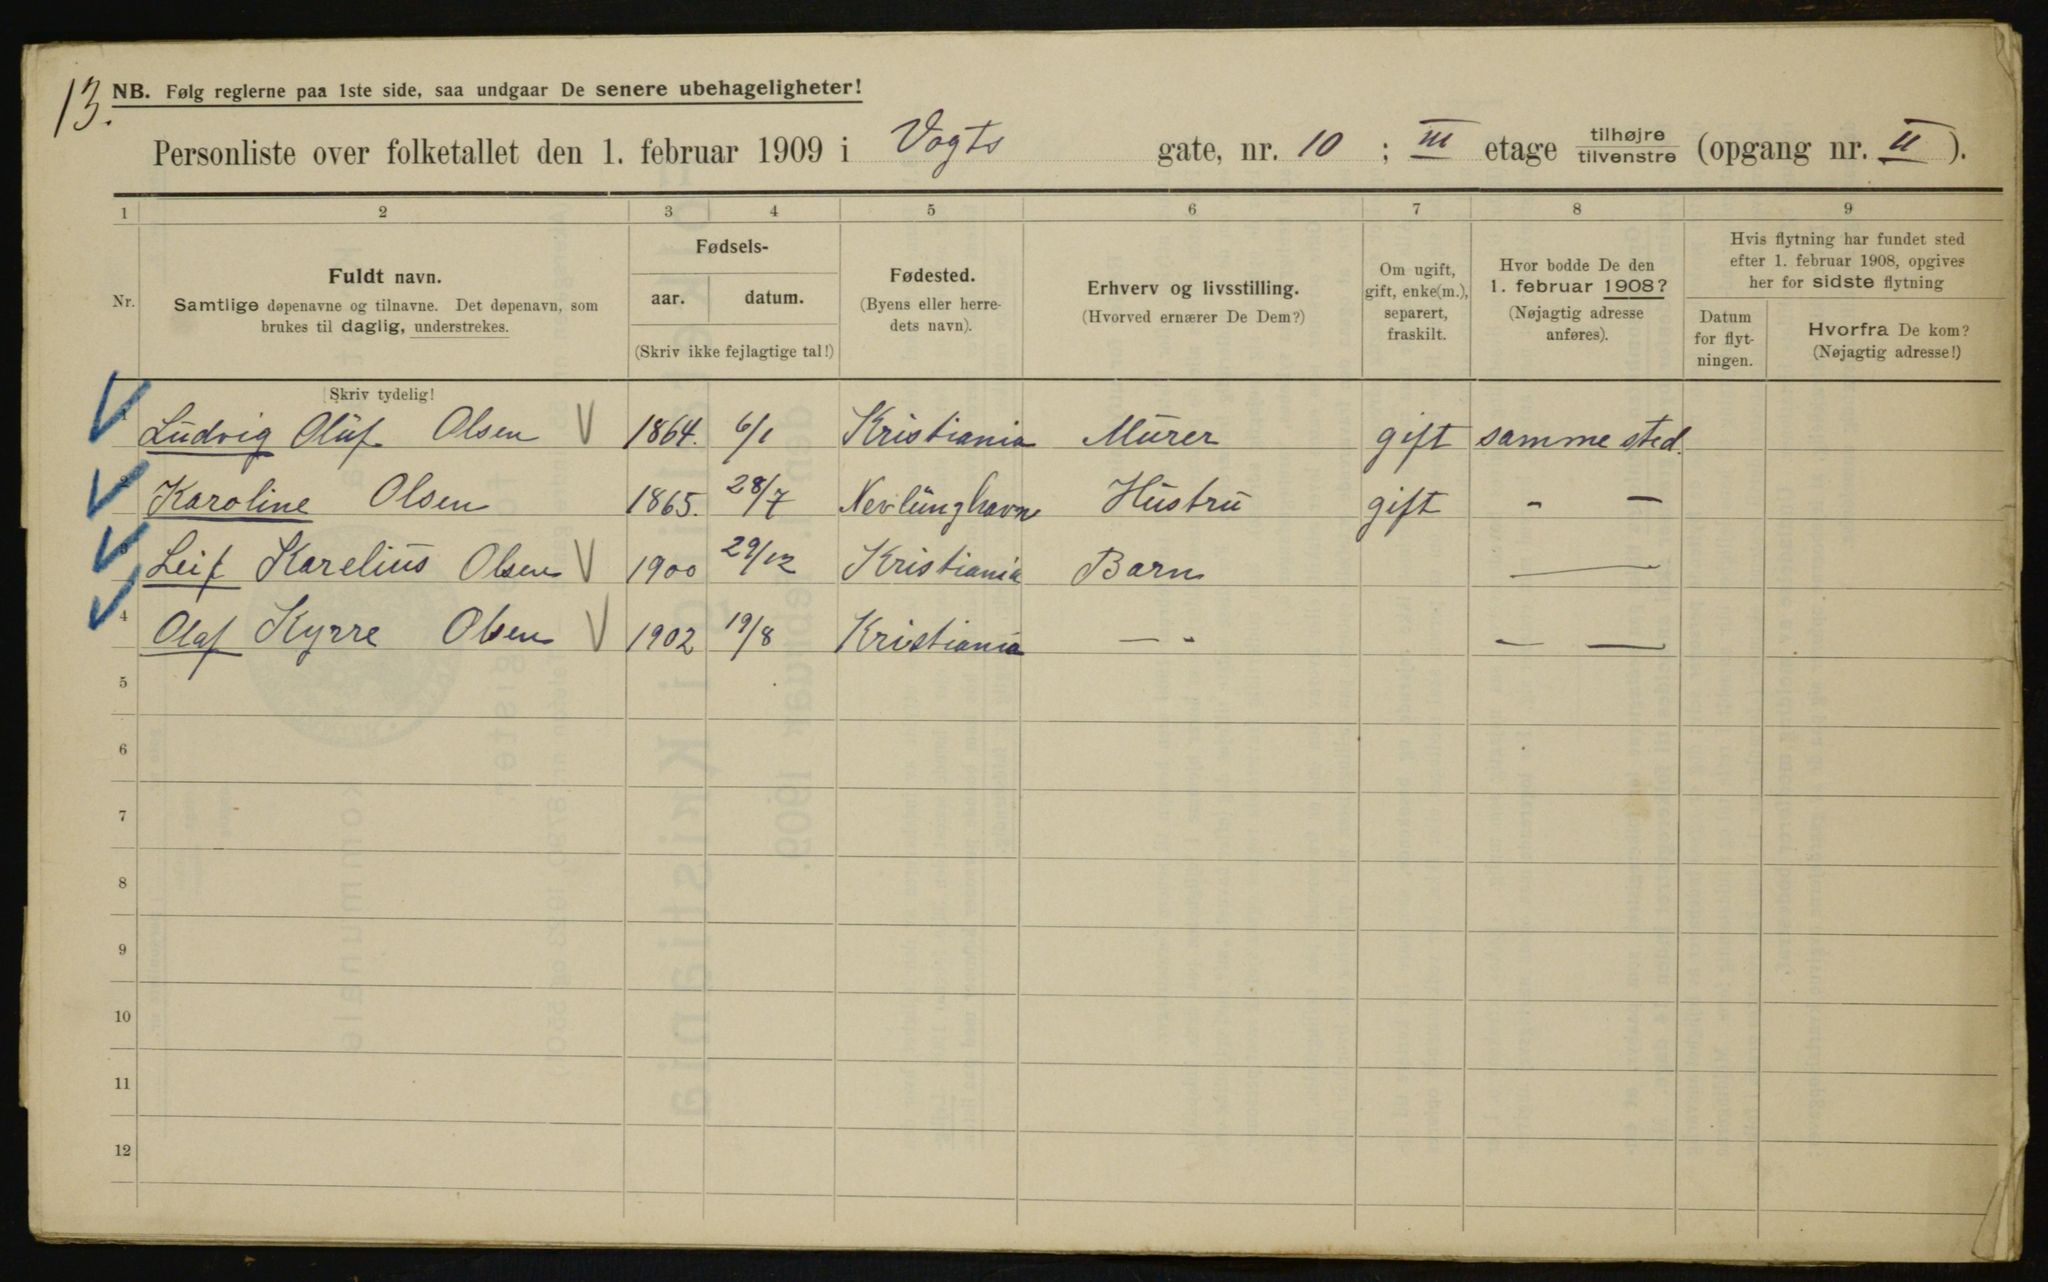 13.
NB. Følg reglerne paa 1ste side, saa undgaar De senere ubehageligheter!
Personliste over folketallet den 1. februar 1909 i Vogts gate, nr. 10 ; III etage tilhøjre/tilvenstre (opgang nr. II ).
1 2 3 4 5 6 7 8 9
Nr.
Fuldt navn.
Samtlige døpenavne og tilnavne. Det døpenavn, som
brukes til daglig, understrekes.
Skriv tydelig!
Fødsels-
aar. datum.
(Skriv ikke fejlagtige tal!)
Fødested.
(Byens eller herre-
dets navn).
Erhverv og livsstilling.
(Hvorved ernærer De Dem?)
Om ugift,
gift, enke(m.),
separert,
fraskilt.
Hvor bodde De den
1. februar 1908?
(Nøjagtig adresse
anføres).
Hvis flytning har fundet sted
efter 1. februar 1908, opgives
her for sidste flytning
Datum
for flyt-
ningen.
Hvorfra De kom?
(Nøjagtig adresse!)
1 Ludvig Oluf Olsen V 1864. 6/1 Kristiania Murer gift samme sted.
2 Karoline Olsen 1865. 28/7 Nevlunghavn Hustru gift - —
3 Leif Karelius Olsen V 1900 29/12 Kristiania Barn —
4 Olaf Kyrre Olsen V 1902 19/8 Kristiania — - — —
5
6
7
8
9
10
11
12